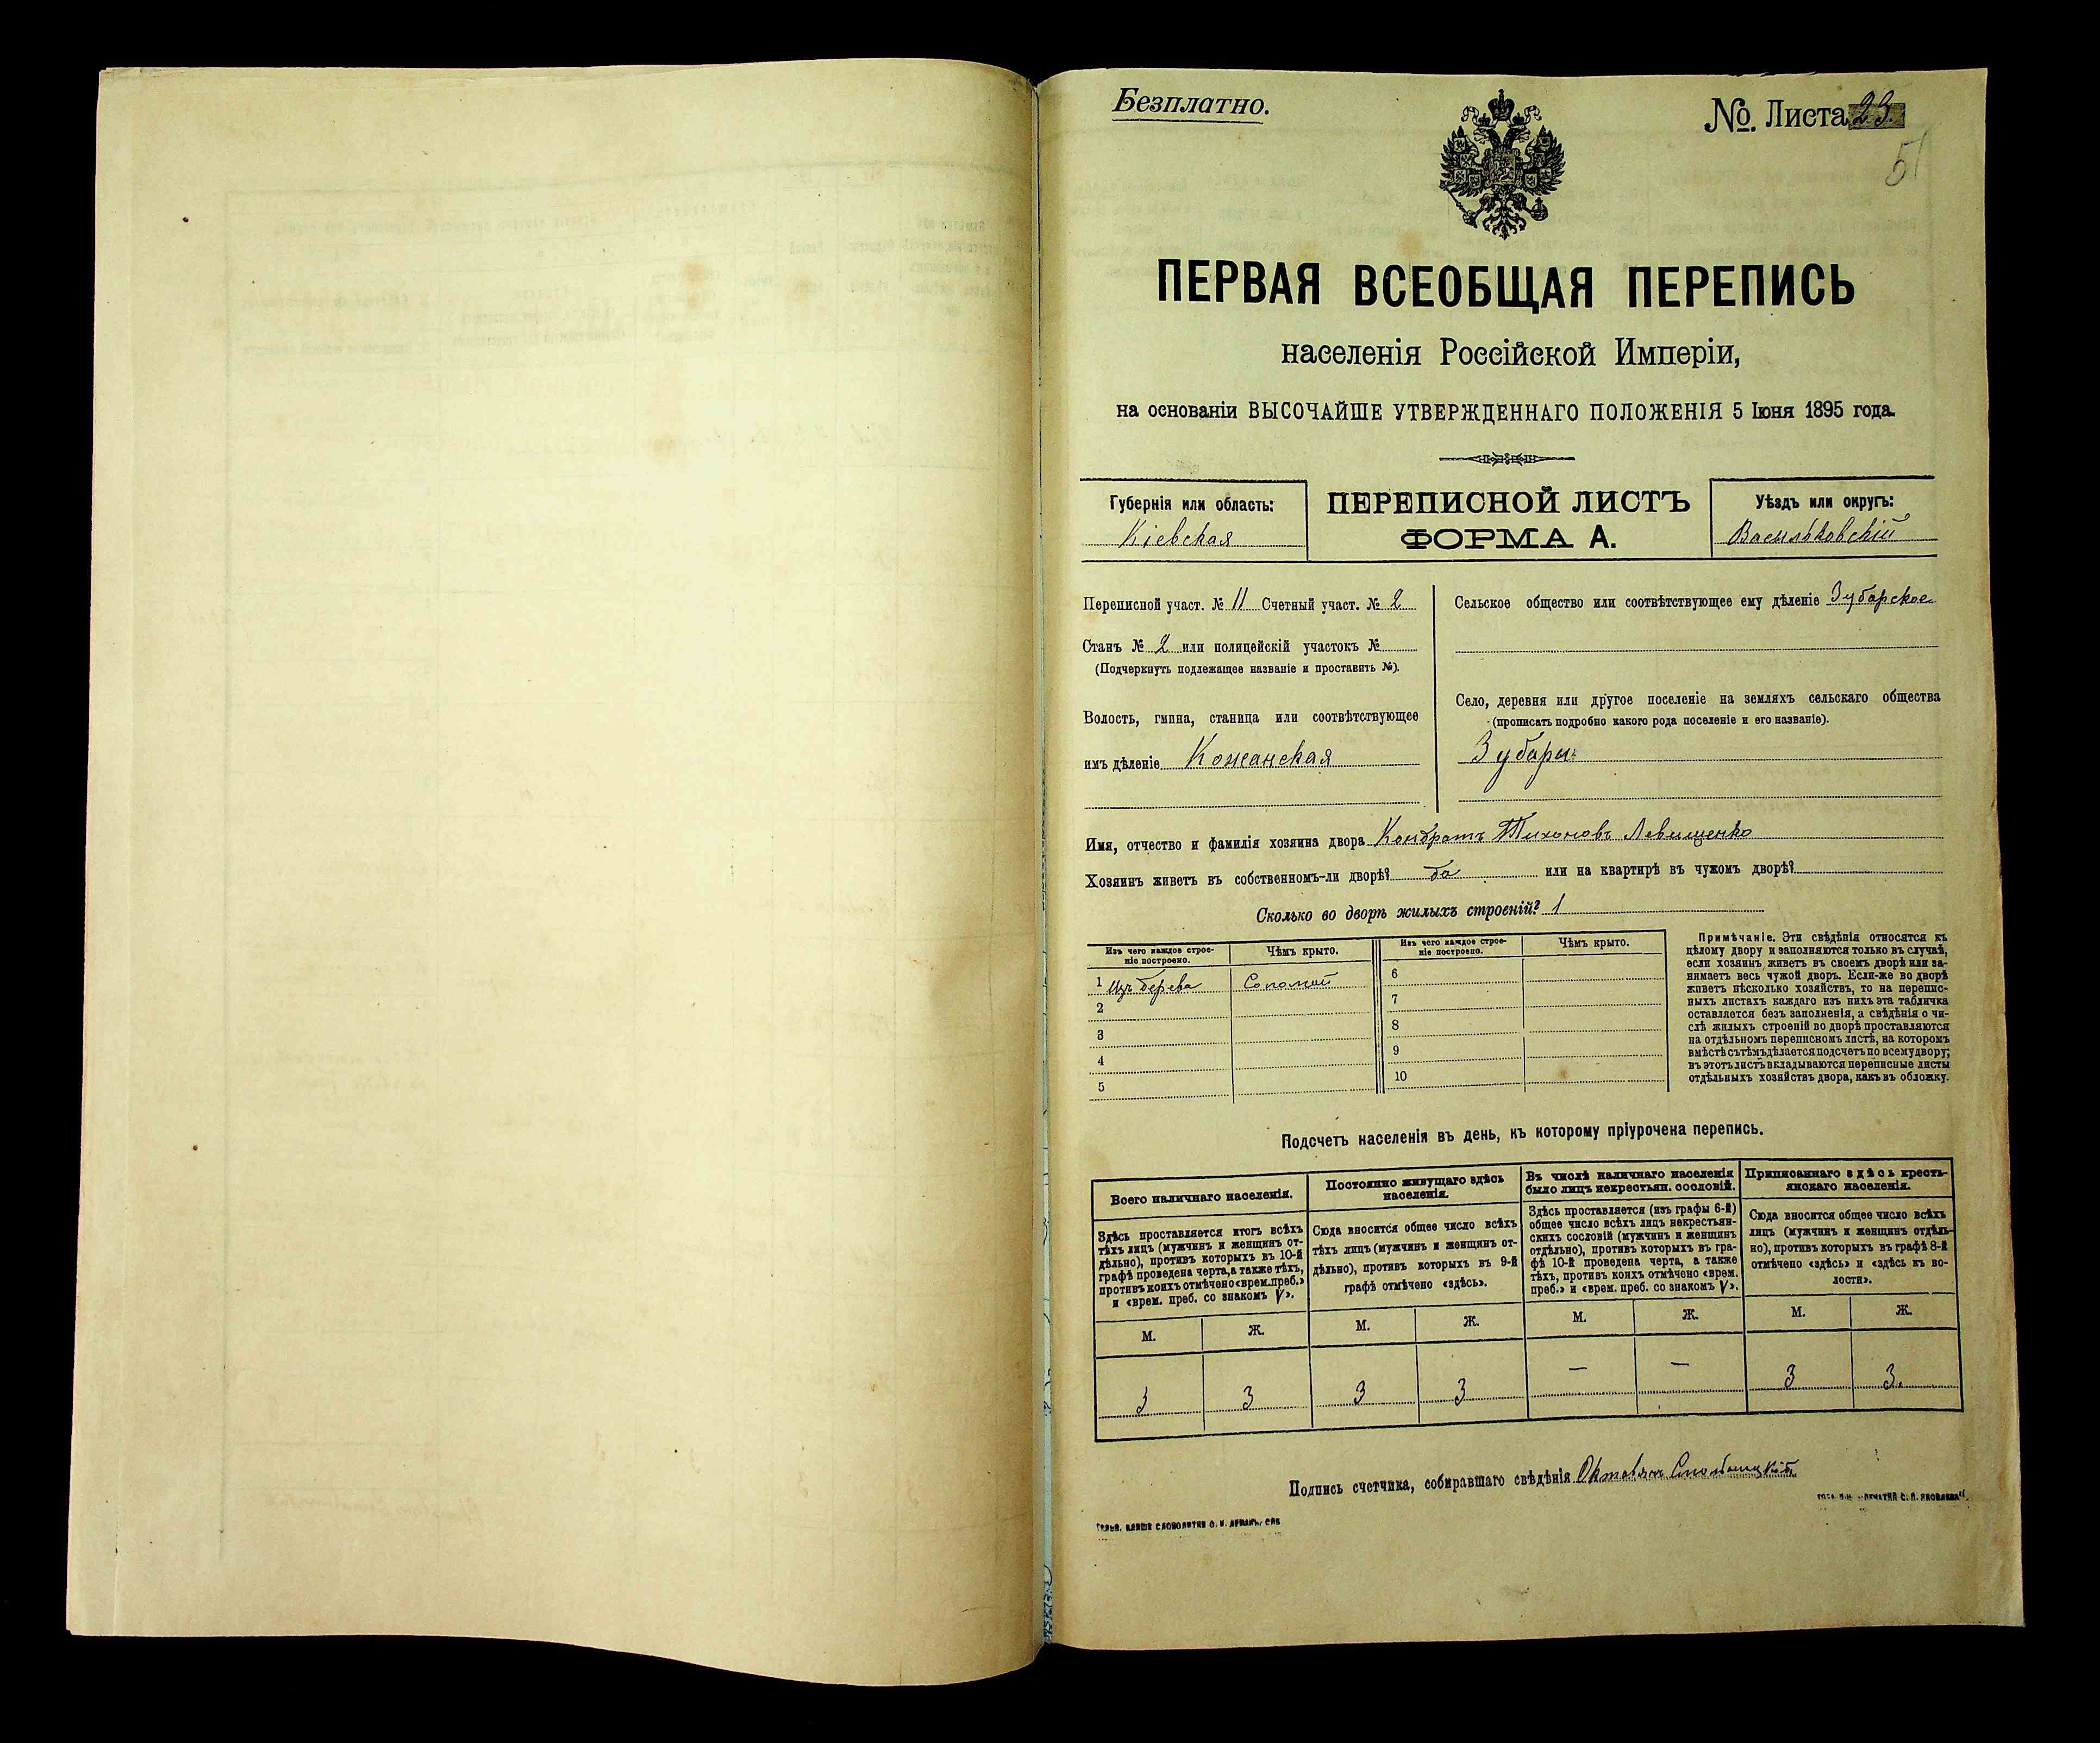 Безплатно.
№. Листа 23.
51
ПЕРВАЯ ВСЕОБЩАЯ ПЕРЕПИСЬ
населенія Россійской Имперіи,
на основаніи ВЫСОЧАЙШЕ УТВЕРЖДЕННАГО ПОЛОЖЕНІЯ 5 Іюня 1895 года.
Губернія или область:
Кіевская
ПЕРЕПИСНОЙ ЛИСТЪ
ФОРМА А.
Уѣздъ или округъ:
Васильковскій
Переписной участ. № 11 Счетный участ. № 2
Станъ № 2 или полицейскій участокъ №
(Подчеркнуть подлежащее названіе и проставить №).
Волость, гмина, станица или соотвѣтствующее
имъ дѣленіе Кожанская
Сельское общество или соотвѣтствующее ему дѣленіе Зубарское
Село, деревня или другое поселеніе на земляхъ сельскаго общества
(прописать подробно какого рода поселеніе и его названіе).
Зубари
Имя, отчество и фамилія хозяина двора Кондратъ Тихоновъ Левищенко
Хозяинъ живетъ въ собственномъ-ли дворѣ? да или на квартирѣ въ чужомъ дворѣ?
Сколько во дворѣ жилыхъ строеній? 1
Изъ чего каждое строе-
ніе построено.
Чѣмъ крыто.
Изъ чего каждое строе-
ніе построено.
Чѣмъ крыто.
1 Изъ дерева Соломой 6
2 7
3 8
4 9
5 10
Примѣчаніе. Эти свѣдѣнія относятся къ
цѣлому двору и заполняются только въ случаѣ,
если хозяинъ живетъ въ своемъ дворѣ или за-
нимаетъ весь чужой дворъ. Если-же во дворѣ
живетъ нѣсколько хозяйствъ, то на перепис-
ныхъ листахъ каждаго изъ нихъ эта табличка
оставляется безъ заполненія, а свѣдѣнія о чи-
слѣ жилыхъ строеній во дворѣ проставляются
на отдѣльномъ переписномъ листѣ, на которомъ
вмѣстѣ съ тѣмъ дѣлается подсчетъ по всему двору;
въ этотъ листъ вкладываются переписные листы
отдѣльныхъ хозяйствъ двора, какъ въ обложку.
Подсчетъ населенія въ день, къ которому пріурочена перепись.
Всего наличнаго населенія.
Здѣсь проставляется итогъ всѣхъ
тѣхъ лицъ (мужчинъ и женщинъ от-
дѣльно), противъ которыхъ въ 10-й
графѣ проведена черта, а также тѣхъ,
противъ коихъ отмѣчено «врем. преб.»
и «врем. преб. со знакомъ V».
Постоянно живущаго здѣсь
населенія.
Сюда вносится общее число всѣхъ
тѣхъ лицъ (мужчинъ и женщинъ от-
дѣльно), противъ которыхъ въ 9-й
графѣ отмѣчено «здѣсь».
Въ числѣ наличнаго населенія
было лицъ некрестьян. сословій.
Здѣсь проставляется (изъ графы 6-й)
общее число всѣхъ лицъ некрестьян-
скихъ сословій (мужчинъ и женщинъ
отдѣльно), противъ которыхъ въ гра-
фѣ 10-й проведена черта, а также
тѣхъ, противъ коихъ отмѣчено «врем.
преб.» и «врем. преб. со знакомъ V».
Приписаннаго здѣсь кресть-
янскаго населенія.
Сюда вносится общее число всѣхъ
лицъ (мужчинъ и женщинъ отдѣль-
но), противъ которыхъ въ графѣ 8-й
отмѣчено «здѣсь» и «здѣсь къ во-
лости».
М. Ж. М. Ж. М. Ж. М. Ж.
3 3 3 3 — — 3 3.
Подпись счетчика, собиравшаго свѣдѣнія